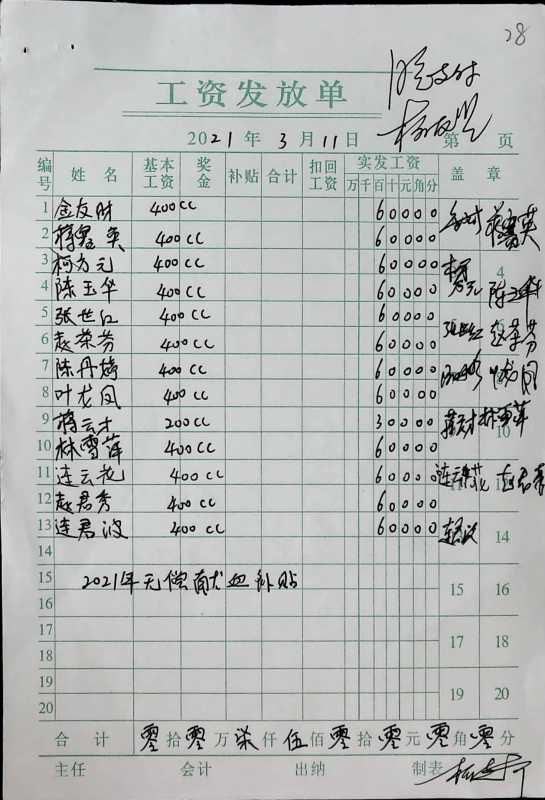 28
同意支付
工资发放单
2021年 3月 11日 第 页
编号 姓名 基本工资 奖金 补贴 合计 扣回工资 实发工资 盖章
万 千 百 十 元 角 分
1 金友财 400cc 60000
2 蒋 英 400cc 60000
3 柯为元 400cc 60000 4
4 陈玉华 400cc 60000 陈玉华
5 张世红 400cc 60000 张世红
6 赵荣芬 400cc 60000 赵荣芬
7 陈丹 400cc 60000
8 叶龙凤 400cc 60000 叶龙凤
9 蒋云才 200cc 30000 林雪萍
10 林雪萍 400cc 60000 10
11 连云花 400cc 60000 连云花 赵君秀
12 赵君秀 400cc 60000
13 连君波 400cc 60000
14 14
15 2021年无偿献血补贴 15 16
16
17 17 18
18
19 19 20
20
合计 零拾零万柒仟伍佰零拾零元零角零分
主任 会计 出纳 制表